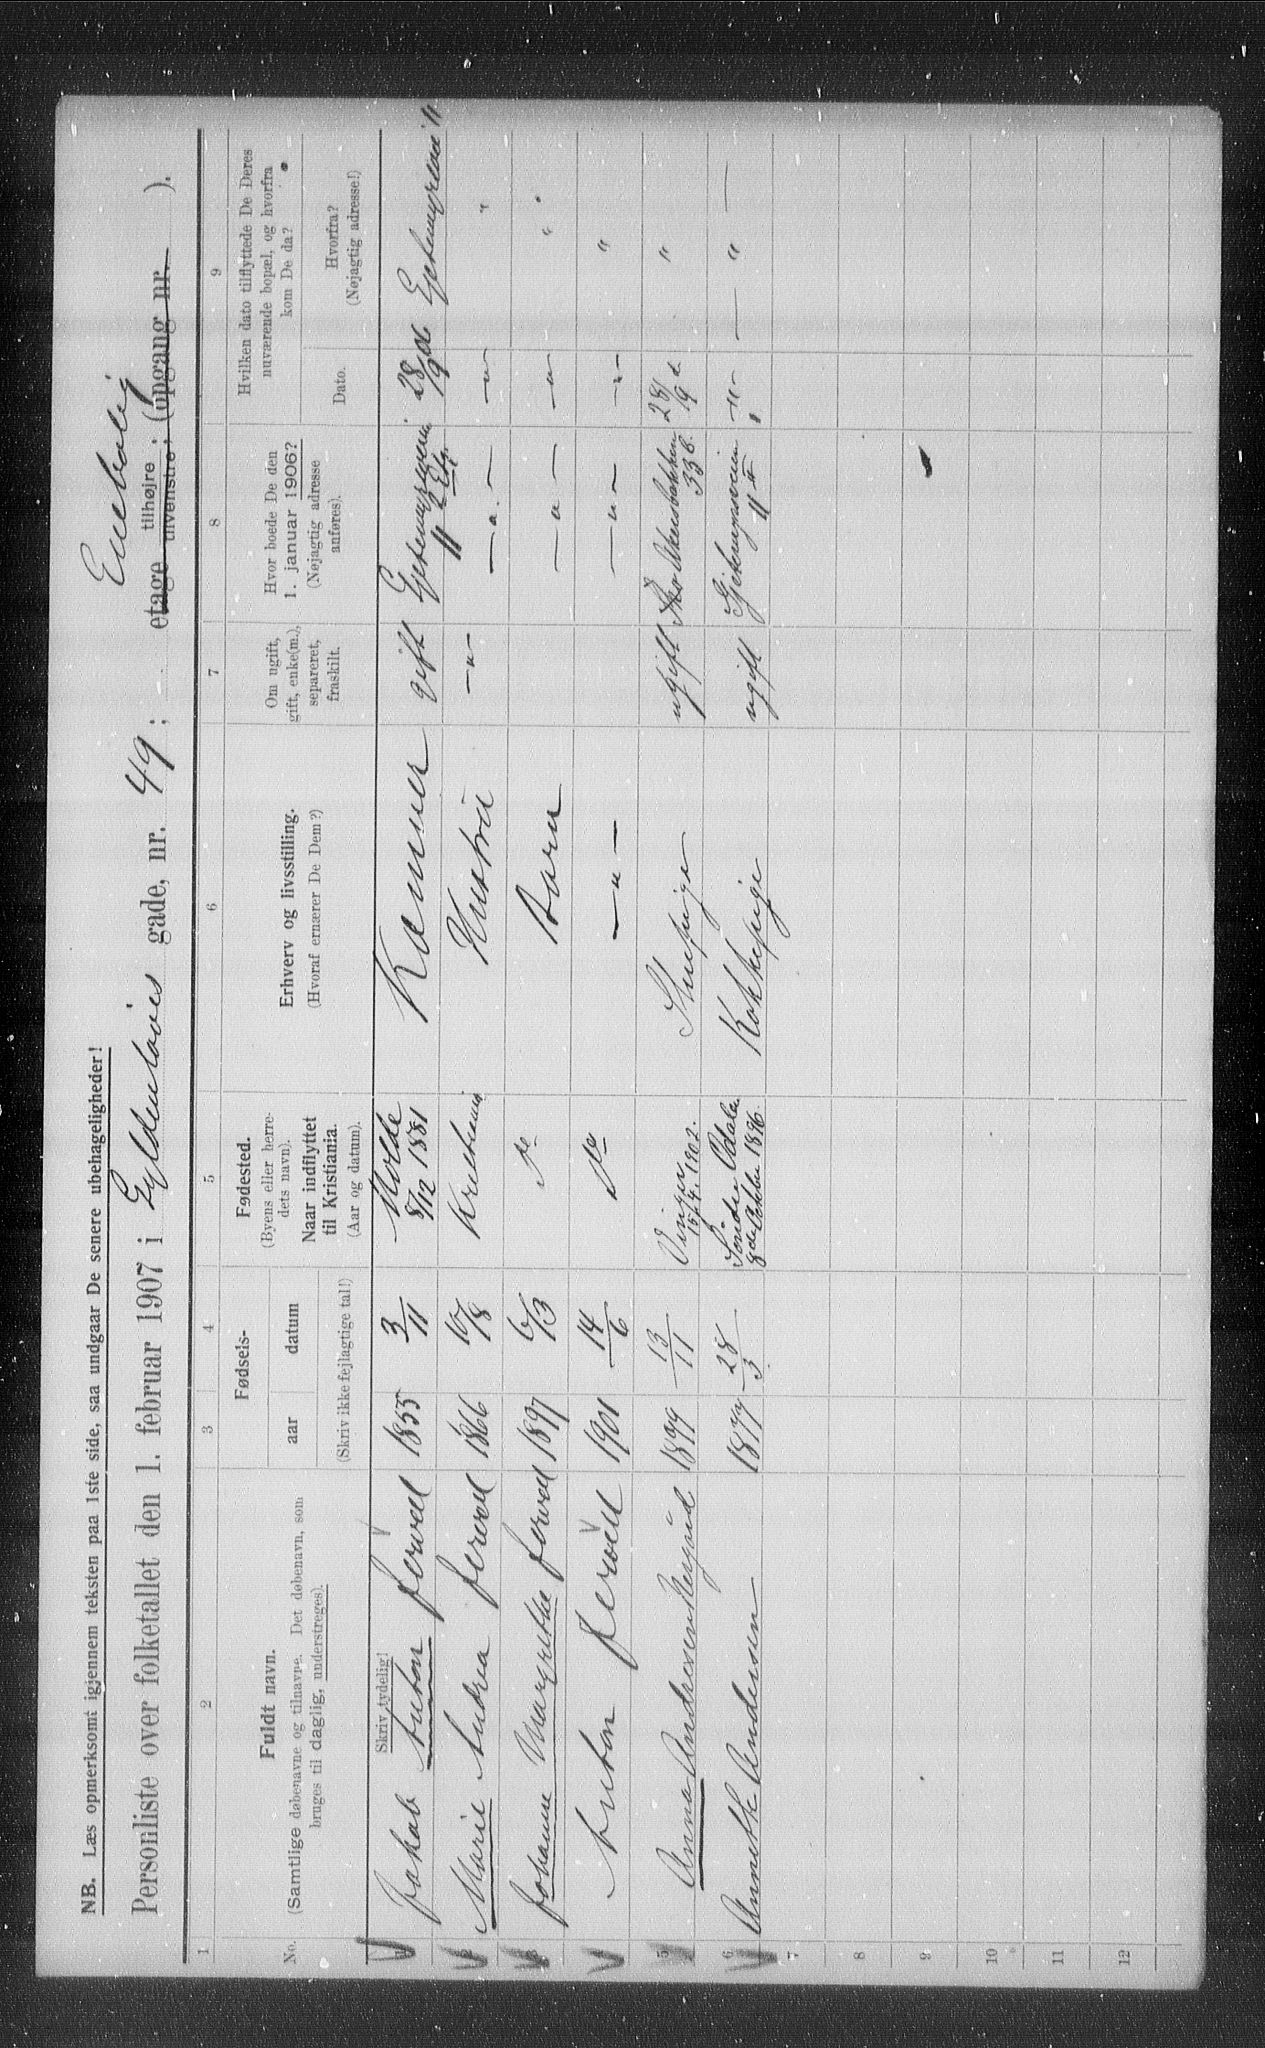 NB. Læs opmerksomt igjennem teksten paa 1ste side, saa undgaar De senere ubehageligheder!
Personliste over folketallet den 1. februar 1907 i Gyldenløves gade, nr. 49; etage tilhøjre tilvenstre; (opgang nr. ).
Enebolig
1 2 3 4 5 6 7 8 9
No.
Fuldt navn.
(Samtlige døbenavne og tilnavne. Det døbenavn, som
bruges til daglig, understreges).
Skriv tydelig!
Fødsels-
aar datum
(Skriv ikke fejlagtige tal!)
Fødested.
(Byens eller herre-
dets navn).
Naar indflyttet
til Kristiania.
(Aar og datum).
Erhverv og livsstilling.
(Hvoraf ernærer De Dem?)
Om ugift,
gift, enke(m.),
separeret,
fraskilt.
Hvor boede De den
1. januar 1906?
(Nøjagtig adresse
anføres).
Hvilken dato tilflyttede De Deres
nuværende bopæl, og hvorfra
kom De da?
Dato.
Hvorfra?
(Nøjagtig adresse!)
1 Jakob Anton Jervell 1855 3/11 Molde 8/12 1881 gift 11 2 Etg 28/9 06
2 Marie Andrea Jervell 1866 10/8 Kristiania Hustru —"— —"— —"— "
3 Johanne Margrethe Jervell 1897 6/13 do Barn —"— —"— "
4 Anton Jervell 1901 14/6 do —"— —"— —"— "
5 Anna Andresen 13/11 Vinger 15/4 1902. Stuepige ugift 33 b. 28/9 "
6 Annette Andersen 1877 28/3 Søndre Odalen 8de Oktober 1896. Kokkepige ugift 11 II —"— — " —
7
8
9
10
11
12